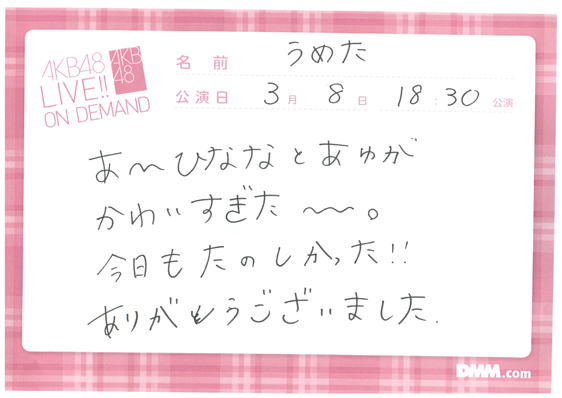 AKB48
LIVE!!
ON DEMAND
AKB
48
名前 うめた
公演日 3月 8日 18:30公演
あ〜ひななとあゆが
かわいすぎた〜〜。
今日もたのしかった!!
ありがとうございました.
DMM.com